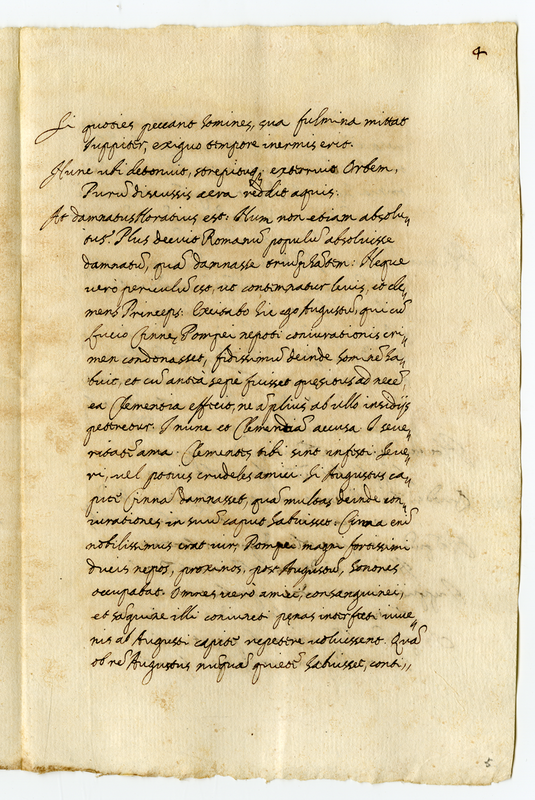 4
Si quoties peccant homines, sua fulmina mittat
Iuppiter, exiguo tempore inermis erit.
Hunc ubi detonuit, strepituq; exterruit Orbem,
Purũ discussis aera reddit aquis.
At damnatus Horatius est: Num non etiam absolu„
tus? Plus decuit Romanũ populũ absoluisse
damnatũ, quã damnasse triũphãtem: Neque
vero periculũ est, ut contemnatur lenis, et cle„
mens Princeps: Excitabo hic ego Augustũ, qui cũ
Lucio Cinnę, Pompei nepoti coniurationis cri„
men condonasset, fidissimũ deinde hominẽ ha„
buit, et cũ anteà sępè fuisset quęsitus ad necẽ,
ea Clementia effecit, ne ãplius ab ullo insidijs
petteretur. I nunc et Clementiã accusa. I seue„
ritatẽ ama. Clementes tibi sint infesti. Seue„
ri, uel potius crudeles amici. Si Augustus ca„
pite Cinnã damnasset, quã multas deinde con„
iurationes in suũ caput habuisset. Cinna enĩ
nobilissimus erat uir, Pompei magni fortissimi
ducis nepos, proximos, post Augustũ, honores
occupabat. Omnes uerò amici, consanguinei,
et sãguine illi coniuncti pęnas interfecti iuue„
nis ab Augusti capite repetere uoluissent. Quã
ob rẽ Augustus nũquã quietẽ habuisset, conti„
5